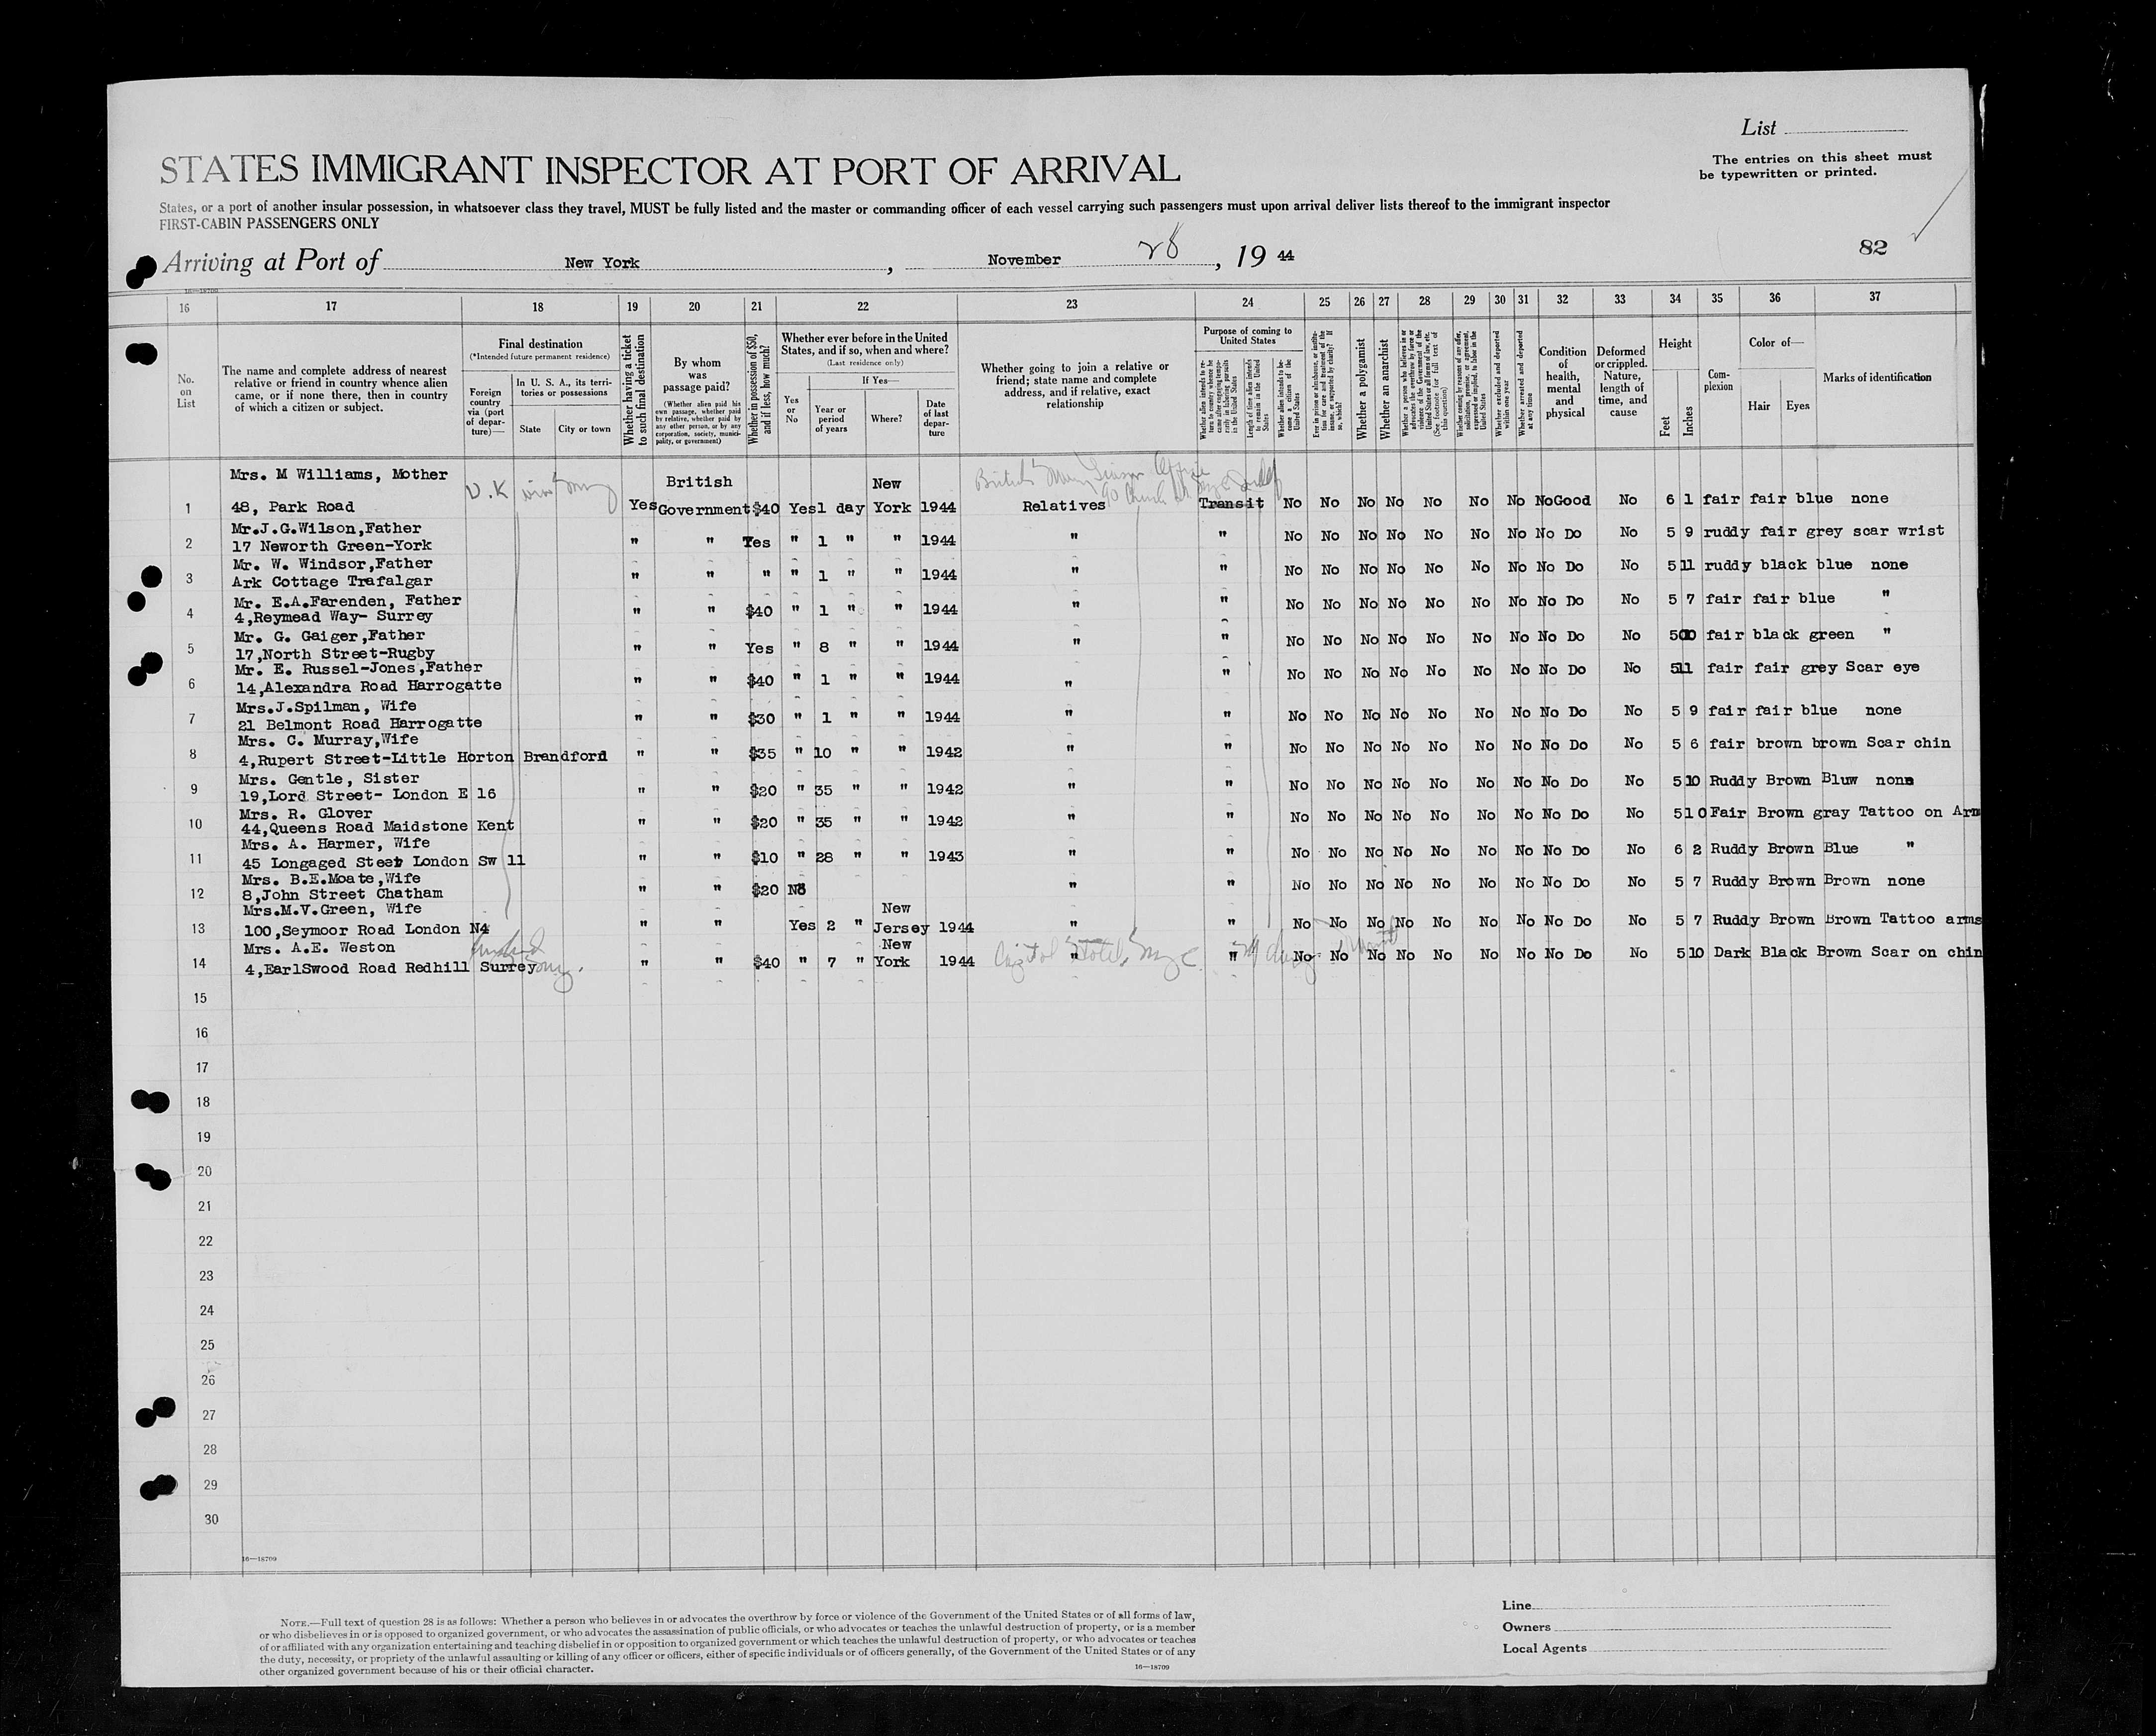 List
STATES IMMIGRANT INSPECTOR AT PORT OF ARRIVAL
The entries on this sheet must
be typewritten or printed.
States, or a port of another insular possession, in whatsoever class they travel, MUST be fully listed and the master or commanding officer of each vessel carrying such passengers must upon arrival deliver lists thereof to the immigrant inspector
FIRST-CABIN PASSENGERS ONLY
Arriving at Port of New York, November 28, 19 44
82
16—18709
16 17 18 19 20 21 22 23 24 25 26 27 28 29 30 31 32 33 34 35 36 37
No. on List
The name and complete address of nearest relative or friend in country whence alien came, or if none there, then in country of which a citizen or subject.
Final destination
(*Intended future permanent residence)
Foreign country via (port of departure)—
In U. S. A., its territories or possessions
State
City or town
Whether having a ticket to such final destination
By whom was passage paid?
(Whether alien paid his own passage, whether paid by relative, whether paid by any other person, or by any corporation, society, municipality, or government)
Whether in possession of $50, and if less, how much?
Whether ever before in the United States, and if so, when and where?
(Last residence only)
Yes or No
If Yes—
Year or period of years
Where?
Date of last departure
Whether going to join a relative or friend; state name and complete address, and if relative, exact relationship
Purpose of coming to United States
Whether alien intends to return to country whence he came after engaging temporarily in laboring pursuits in the United States
Length of time alien intends to remain in the United States
Whether alien intends to become a citizen of the United States
Ever in prison or almshouse, or institution for care and treatment of the insane, or supported by charity? If so, which?
Whether a polygamist
Whether an anarchist
Whether a person who believes in or advocates the overthrow by force or violence of the Government of the United States or all forms of law, etc. (See footnote for full text of this question)
Whether coming by reasons of any offer, solicitation, promise, or agreement, expressed or implied, to labor in the United States
Whether excluded and deported within one year
Whether arrested and deported at any time
Condition of health, mental and physical
Deformed or crippled. Nature, length of time, and cause
Height
Feet
Inches
Complexion
Color of—
Hair
Eyes
Marks of identification
Mrs. M Williams, Mother U.K British New British Office
1 48, Park Road Yes Government $40 Yes 1 day York 1944 Relatives 90 Church Transit No No No No No No No No Good No 6 1 fair fair blue none
Mr.J.G.Wilson,Father
2 17 Neworth Green-York " " Yes " 1 " " 1944 " " No No No No No No No No Do No 5 9 ruddy fair grey scar wrist
Mr. W. Windsor,Father
3 Ark Cottage Trafalgar " " " " 1 " " 1944 " " No No No No No No No No Do No 5 11 ruddy black blue none
Mr. E.A.Farenden, Father
4 4,Reymead Way- Surrey " " $40 " 1 " " 1944 " " No No No No No No No No Do No 5 7 fair fair blue "
Mr. G. Gaiger,Father
5 17,North Street-Rugby " " Yes " 8 " " 1944 " " No No No No No No No No Do No 5 10 fair black green "
Mr. E. Russel-Jones,Father
6 14,Alexandra Road Harrogatte " " $40 " 1 " " 1944 " " No No No No No No No No Do No 5 11 fair fair grey Scar eye
Mrs.J.Spilman, Wife
7 21 Belmont Road Harrogatte " " $30 " 1 " " 1944 " " No No No No No No No No Do No 5 9 fair fair blue none
Mrs. C. Murray,Wife
8 4,Rupert Street-Little Horton Brandford " " $35 " 10 " " 1942 " " No No No No No No No No Do No 5 6 fair brown brown Scar chin
Mrs. Gentle, Sister
9 19,Lord Street- London E 16 " " $20 " 35 " " 1942 " " No No No No No No No No Do No 5 10 Ruddy Brown Bluw none
Mrs. R. Glover
10 44,Queens Road Maidstone Kent " " $20 " 35 " " 1942 " " No No No No No No No No Do No 5 10 Fair Brown gray Tattoo on Arm
Mrs. A. Harmer, Wife
11 45 Longaged Steet London Sw 11 " " $10 " 28 " " 1943 " " No No No No No No No No Do No 6 2 Ruddy Brown Blue "
Mrs. B.E.Moate,Wife
12 8,John Street Chatham " " $20 No " " No No No No No No No No Do No 5 7 Ruddy Brown Brown none
Mrs.M.V.Green, Wife New
13 100,Seymoor Road London N4 " " Yes 2 " Jersey 1944 " " No No No No No No No No Do No 5 7 Ruddy Brown Brown Tattoo arms
Mrs. A.E. Weston New
14 4,EarlSwood Road Redhill Surrey " " $40 " 7 " York 1944 Hotel " " No No No No No No No No Do No 5 10 Dark Black Brown Scar on chin
15
16
17
18
19
20
21
22
23
24
25
26
27
28
29
30
16—18709
NOTE.—Full text of question 28 is as follows: Whether a person who believes in or advocates the overthrow by force or violence of the Government of the United States or of all forms of law,
or who disbelieves in or is opposed to organized government, or who advocates the assassination of public officials, or who advocates or teaches the unlawful destruction of property, or is a member
of or affiliated with any organization entertaining and teaching disbelief in or opposition to organized government or which teaches the unlawful destruction of property, or who advocates or teaches
the duty, necessity, or propriety of the unlawful assaulting or killing of any officer or officers, either of specific individuals or of officers generally, of the Government of the United States or of any
other organized government because of his or their official character.
16—18709
Line
Owners
Local Agents